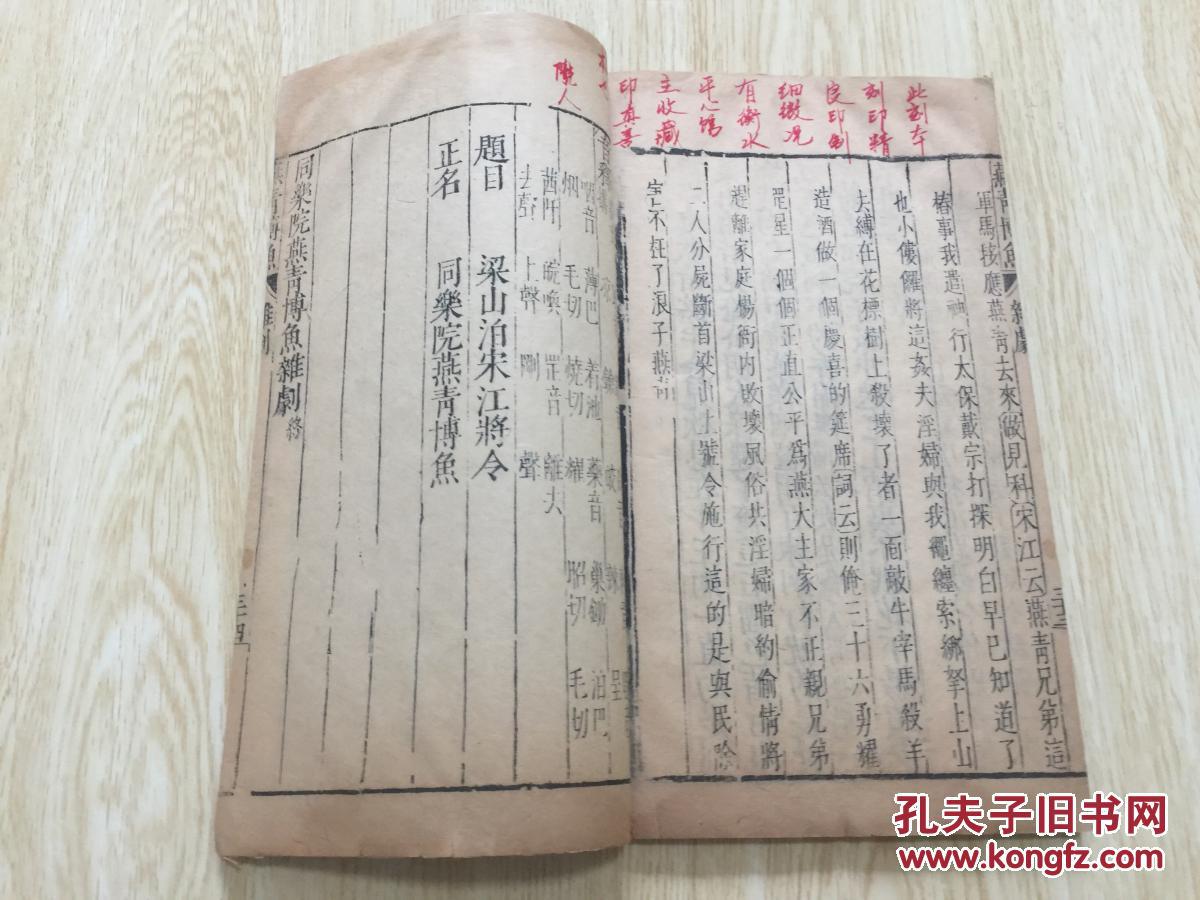 此刻本
刻印精
良印制
细緻况
有衡水
平心馆
主收藏
印真喜
隴人
燕青博魚 雜劇 三十三
軍馬接應燕青去來做見科宋江云燕青兄弟這
樁事我遣神行太保戴宗打探明白早已知道了
也小僂儸將這姦夫淫婦與我繩纏索綁拏上山
去縛在花標樹上殺壞了者一面敲牛宰馬殺羊
造酒做一個慶喜的筵席詞云則俺三十六勇耀
罡星一個個正直公平爲燕大主家不正親兄弟
趕離家庭楊衙內敗壞風俗共淫婦暗約偷情將
二人分屍斷首梁山上號令施行這的是與民除
害不枉了浪子燕青
音釋
泊巴毛切
巢鋤昭切
藥音耀
着池燒切
薄巴毛切
罡音剛
題目 梁山泊宋江將令
正名 同樂院燕青博魚
同樂院燕青博魚雜劇終
三十四
孔夫子旧书网
www.kongfz.com